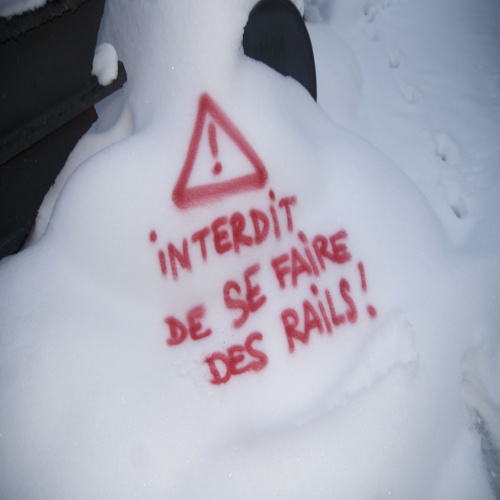 !
INTERDIT
DE SE FAIRE
DES RAILS!